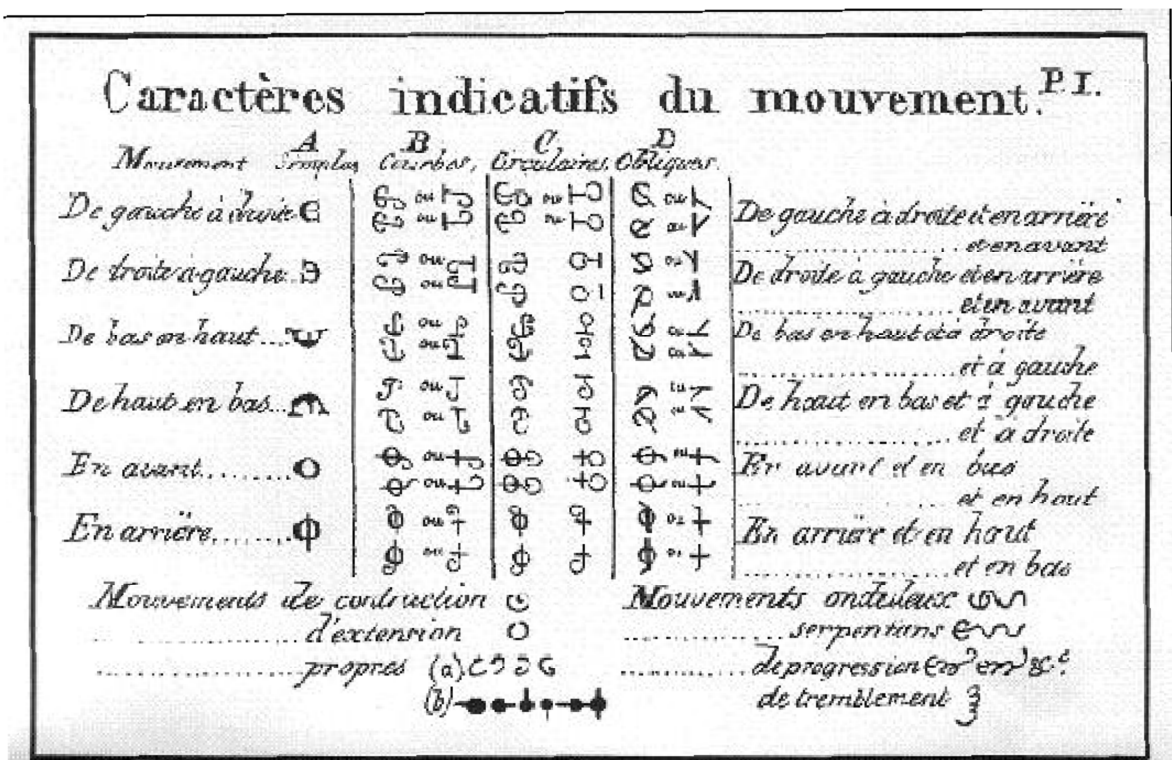 Caractères indicatifs du mouvement. P. I.
A B C D
Mouvement Simples Courbes, Circulaires, Obliques.
De gauche à droite ou ou ou ou De gauche à droite et en arrière
et en avant
De droite à gauche ou ou De droite à gauche et en arrière
et en avant
De bas en haut ou ou De bas en haut et à droite
et à gauche
De haut en bas ou ou De haut en bas et à gauche
et à droite
En avant ou ou En avant et en bas
et en haut
En arrière ou ou En arrière et en haut
et en bas
Mouvements de contraction Mouvements onduleux
d'extension serpentans
propres (a) de progression &c.
(b) de tremblement